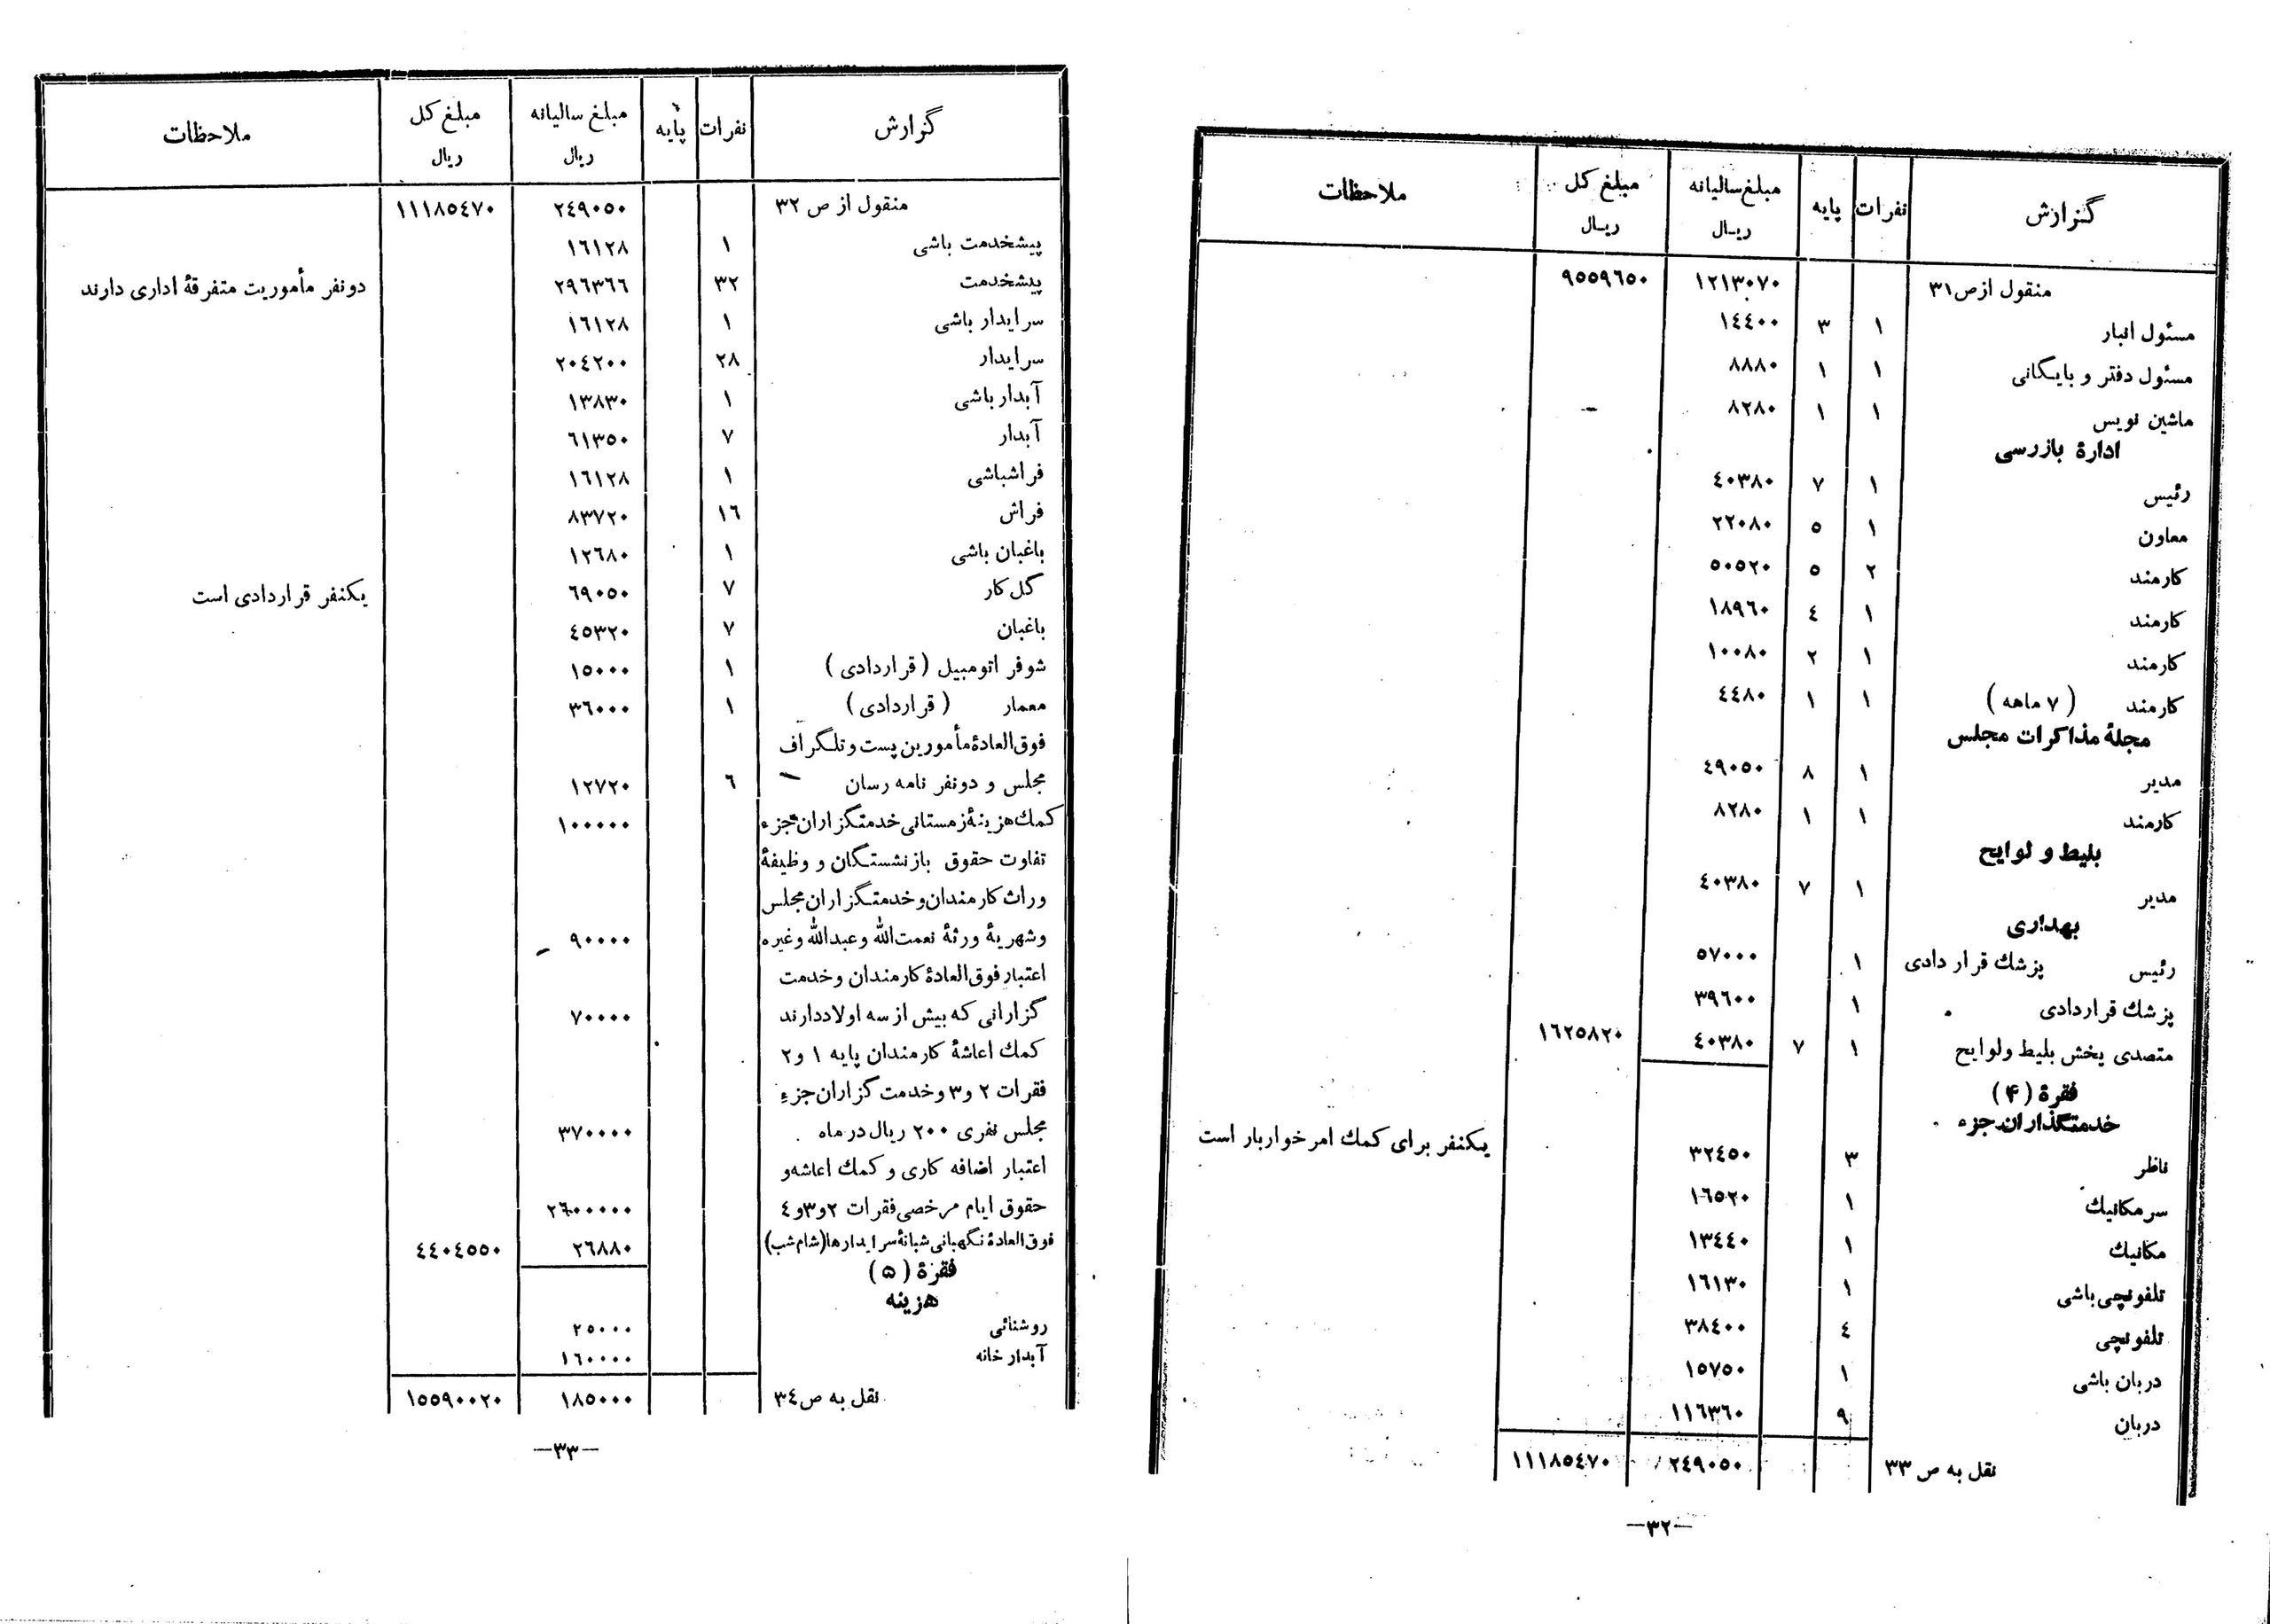 گزارش نفرات پایه مبلغ سالیانه ریال مبلغ کل ریال ملاحظات
منقول از ص ۳۱ ۱۲۱۳۰۷۰ ۹۵۵۹٦۵۰
مسئول انبار ۱ ۳ ۱٤٤۰۰
مسئول دفتر و بایگانی ۱ ۱ ۸۸۸۰
ماشین نویس ۱ ۱ ۸۲۸۰
ادارهٔ بازرسی
رئیس ۱ ۷ ٤۰۳۸۰
معاون ۱ ۵ ۲۲۰۸۰
کارمند ۲ ۵ ۵۰۵۲۰
کارمند ۱ ٤ ۱۸۹٦۰
کارمند ۱ ۲ ۱۰۰۸۰
کارمند (۷ ماهه) ۱ ۱ ٤٤۸۰
مجلهٔ مذاکرات مجلس
مدیر ۱ ۸ ٤۹۰۵۰
کارمند ۱ ۱ ۸۲۸۰
بلیط و لوایح
مدیر ۱ ۷ ٤۰۳۸۰
بهداری
رئیس پزشك قرار دادی ۱ ۵۷۰۰۰
پزشك قراردادی ۱ ۳۹٦۰۰
متصدی پخش بلیط ولوایح ۱ ۷ ٤۰۳۸۰ ۱٦۲۵۸۲۰
فقرهٔ (۴)
خدمتگذاران جزء
ناظر ۳ ۳۲٤۵۰ یکنفر برای کمك امر خواربار است
سرمکانیك ۱ ۱٦۵۲۰
مکانیك ۱ ۱۳٤٤۰
تلفونچی باشی ۱ ۱٦۱۳۰
تلفونچی ٤ ۳۸٤۰۰
دربان باشی ۱ ۱۵۷۵۰
دربان ۹ ۱۱٦۳٦۰
نقل به ص ۳۳ ۲٤۹۰۵۰ ۱۱۱۸۵٤۷۰
—۳۲—
گزارش نفرات پایه مبلغ سالیانه ریال مبلغ کل ریال ملاحظات
منقول از ص ۳۲ ۲٤۹۰۵۰ ۱۱۱۸۵٤۷۰
پیشخدمت باشی ۱ ۱٦۱۲۸
پیشخدمت ۳۲ ۲۹٦۳٦٦ دونفر مأموریت متفرقهٔ اداری دارند
سرایدار باشی ۱ ۱٦۱۲۸
سرایدار ۲۸ ۲۰٤۲۰۰
آبدار باشی ۱ ۱۳۸۳۰
آبدار ۷ ٦۱۳۵۰
فراشباشی ۱ ۱٦۱۲۸
فراش ۱٦ ۸۳۷۲۰
باغبان باشی ۱ ۱۲٦۸۰
گل کار ۷ ٦۹۰۵۰ یکنفر قراردادی است
باغبان ۷ ٤۵۳۲۰
شوفر اتومبیل (قراردادی) ۱ ۱۵۰۰۰
معمار (قراردادی) ۱ ۳٦۰۰۰
فوق‌العادهٔ مأمورین پست و تلگراف
مجلس و دونفر نامه رسان ٦ ۱۲۷۲۰
کمك هزینهٔ زمستانی خدمتگزاران جزء ۱۰۰۰۰۰
تفاوت حقوق بازنشستگان و وظیفهٔ
وراث کارمندان و خدمتگزاران مجلس
و شهریهٔ ورثهٔ نعمت‌الله و عبدالله و غیره ۹۰۰۰۰
اعتبار فوق‌العادهٔ کارمندان و خدمت
گزارانی که بیش از سه اولاد دارند ۷۰۰۰۰
کمك اعاشهٔ کارمندان پایه ۱ و۲
فقرات ۲ و۳ و خدمت گزاران جزء
مجلس نفری ۲۰۰ ریال در ماه ۳۷۰۰۰۰
اعتبار اضافه کاری و کمك اعاشه و
حقوق ایام مرخصی فقرات ۲و۳و٤ ۲٦۰۰۰۰۰
فوق‌العادهٔ نگهبانی شبانهٔ سرایدارها (شام شب) ۲٦۸۸۰ ٤٤۰٤۵۵۰
فقرهٔ (۵)
هزینه
روشنائی ۲۵۰۰۰
آبدار خانه ۱٦۰۰۰۰
نقل به ص ۳٤ ۱۸۵۰۰۰ ۱۵۵۹۰۰۲۰
—۳۳—